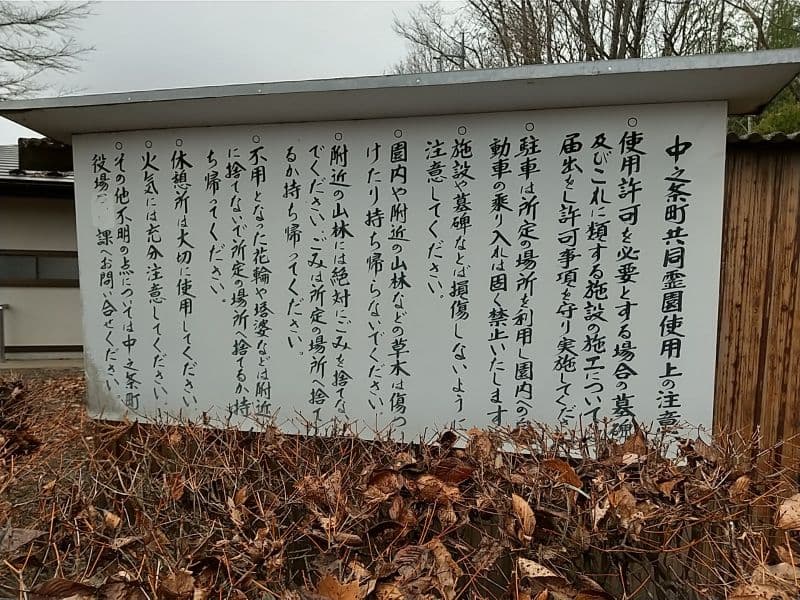 中之条町共同霊園使用上の注意
○使用許可を必要とする場合の墓碑
及びこれに類する施設の施工について
届出をし許可事項を守り実施してくだ
○駐車は所定の場所を利用し園内への自
動車の乗り入れは固く禁止いたします
○施設や墓碑などは損傷しないように
注意してください。
○園内や附近の山林などの草木は傷つ
けたり持ち帰らないでください。
○附近の山林には絶対にごみを捨てない
でください、ごみは所定の場所へ捨て
るか持ち帰ってください。
○不用となった花輪や塔婆などは附近
に捨てないで所定の場所へ捨てるか持
ち帰ってください。
○休憩所は大切に使用してください
○火気には充分注意してください。
○その他不明の点については中之条町
役場 課へお問い合せください。